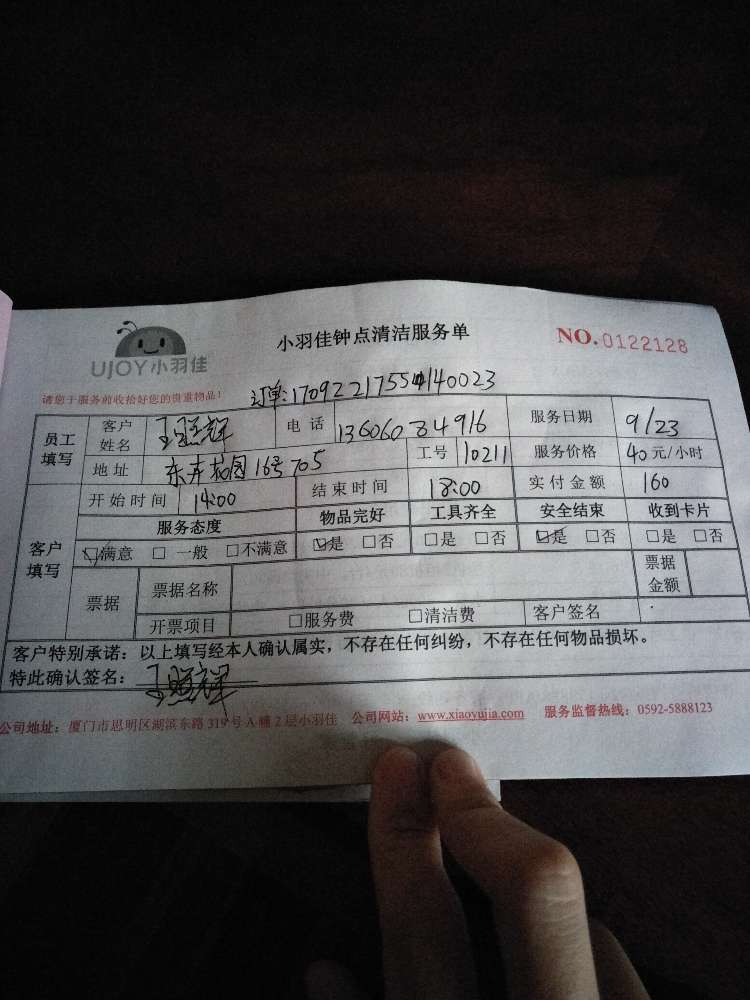 UJOY小羽佳
小羽佳钟点清洁服务单
NO.0122128
请您于服务前收拾好您的贵重物品!
订单:
员工填写 客户姓名 王照辉 电话 13606084916 服务日期 9/23
地址 16号705 工号 10211 服务价格 40元/小时
客户填写 开始时间 14:00 结束时间 18:00 实付金额 160
服务态度 物品完好 工具齐全 安全结束 收到卡片
☑满意 □一般 □不满意 ☑是 □否 □是 □否 ☑是 □否 □是 □否
票据 票据名称 票据金额
开票项目 □服务费 □清洁费 客户签名
客户特别承诺:以上填写经本人确认属实,不存在任何纠纷,不存在任何物品损坏。
特此确认签名: 王照辉
公司地址:厦门市思明区湖滨东路319号A幢2层小羽佳 公司网站:www.xiaoyujia.com 服务监督热线:0592-5888123